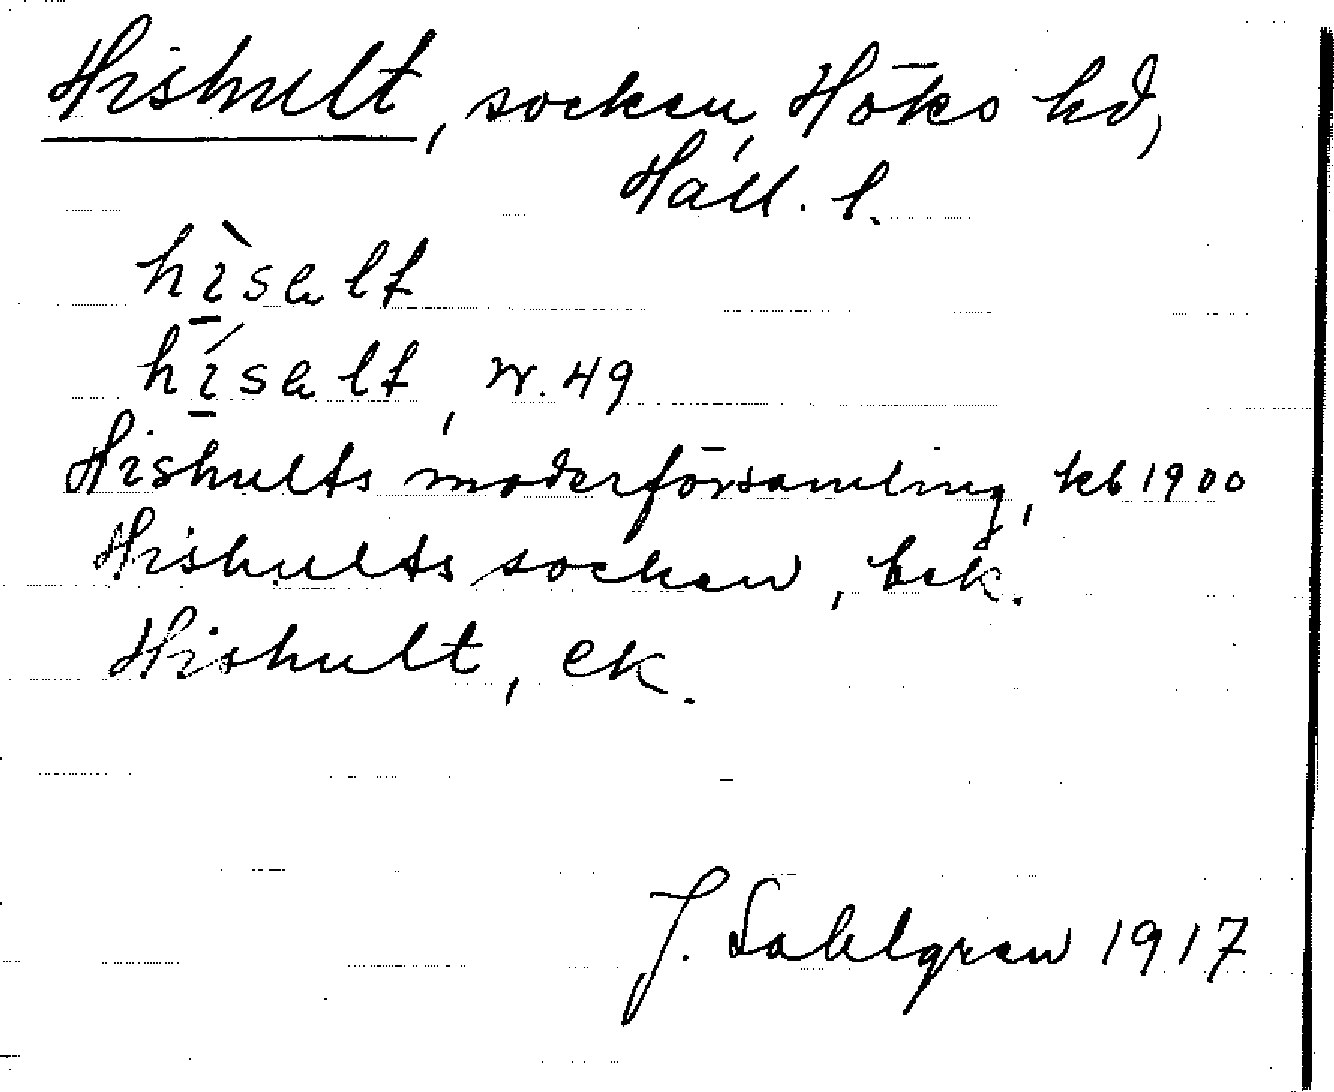 Hishult, socken, Höks hd,
Hall. l.
hi̠̇̀salt
hí̠salt, v. 49
Hishults moderförsamling, kb 1900
Hishults socken, bek.
Hishult, ek.
J. Sahlgren 1917